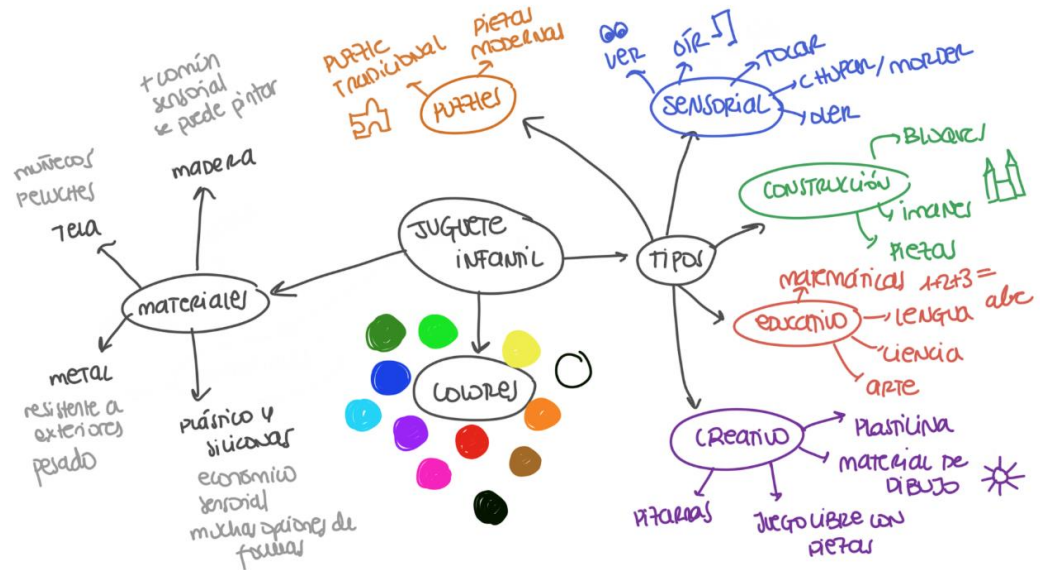 JUGUETE
INFANTIL
MATERIALES
MADERA
+ común
sensorial
se puede pintar
TELA
muñecos
PELUCHES
METAL
resistente a
exteriores
pesado
PLÁSTICO Y
SILICONAS
económico
sensorial
muchas opciones de
formas
COLORES
TIPOS
PUZZLES
PUZZLE
TRADICIONAL
PIEZAS
MODERNAS
SENSORIAL
VER
OÍR
TOCAR
CHUPAR/MORDER
OLER
CONSTRUCCIÓN
BLOQUES
imanes
PIEZAS
EDUCATIVO
MATEMÁTICAS 1+2+3=
LENGUA abc
CIENCIA
ARTE
CREATIVO
PLASTILINA
MATERIAL DE
DIBUJO
JUEGO LIBRE CON
PIEZAS
PIZARRAS